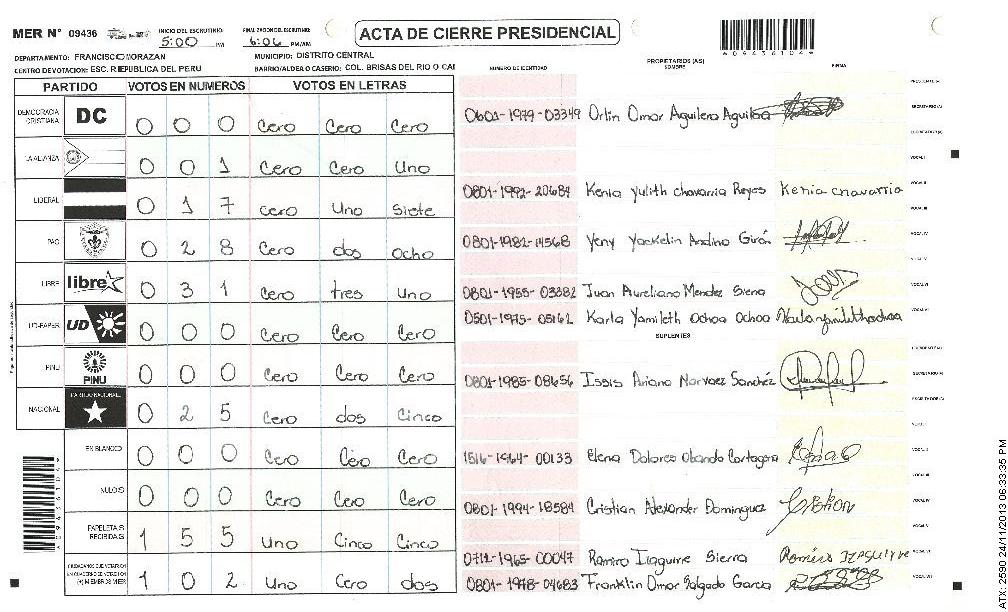 MER N° 09436
INICIO DEL ESCRUTINIO: 5:00 PM
FINALIZACION DEL ESCRUTINIO: 6:06 PM/AM
ACTA DE CIERRE PRESIDENCIAL
DEPARTAMENTO: FRANCISCO MORAZAN
MUNICIPIO: DISTRITO CENTRAL
CENTRO DE VOTACION: ESC. REPUBLICA DEL PERU
BARRIO/ALDEA O CASERIO: COL. BRISAS DEL RIO O CAI
PARTIDO VOTOS EN NUMEROS VOTOS EN LETRAS
DEMOCRACIA CRISTIANA DC 0 0 0 Cero Cero Cero
LA ALIANZA 0 0 1 Cero Cero Uno
LIBERAL 0 1 7 cero Uno siete
PAC 0 2 8 Cero dos ocho
LIBRE libre 0 3 1 Cero tres Uno
UD-FAPER UD 0 0 0 Cero Cero Cero
PINU PINU 0 0 0 Cero Cero Cero
NACIONAL PARTIDO NACIONAL 0 2 5 Cero dos Cinco
EN BLANCO 0 0 0 Cero Cero Cero
NULOS 0 0 0 Cero Cero Cero
PAPELETAS RECIBIDAS 1 5 5 Uno Cinco Cinco
CIUDADANOS QUE VOTARON 1 0 2 Uno Cero dos
NUMERO DE IDENTIDAD
PROPIETARIOS (AS)
NOMBRE
FIRMA
0601-1979-03349 Orlin Omar Aguilera Aguilera
0801-1992-20684 Kenia Yulith chavarria Reyes Kenia chavarria
0801-1982-14568 Yeny Yackelin Andino Girón
0801-1955-03382 Juan Aureliano Mendez Sierra
0501-1975-05162 Karla Yamileth Ochoa Ochoa
SUPLENTES
0801-1985-08656 Issis Ariana Narvaez Sanchéz
1516-1964-00133 Elena Dolores Obando Cartagena
0801-1994-18584 Cristian Alexander Dominguez
0712-1965-00047 Ramiro Izaguirre Sierra
0801-1978-04683 Franklin Omar Salgado Garcia
ATX-2590 24/11/2013 06:33:35 PM